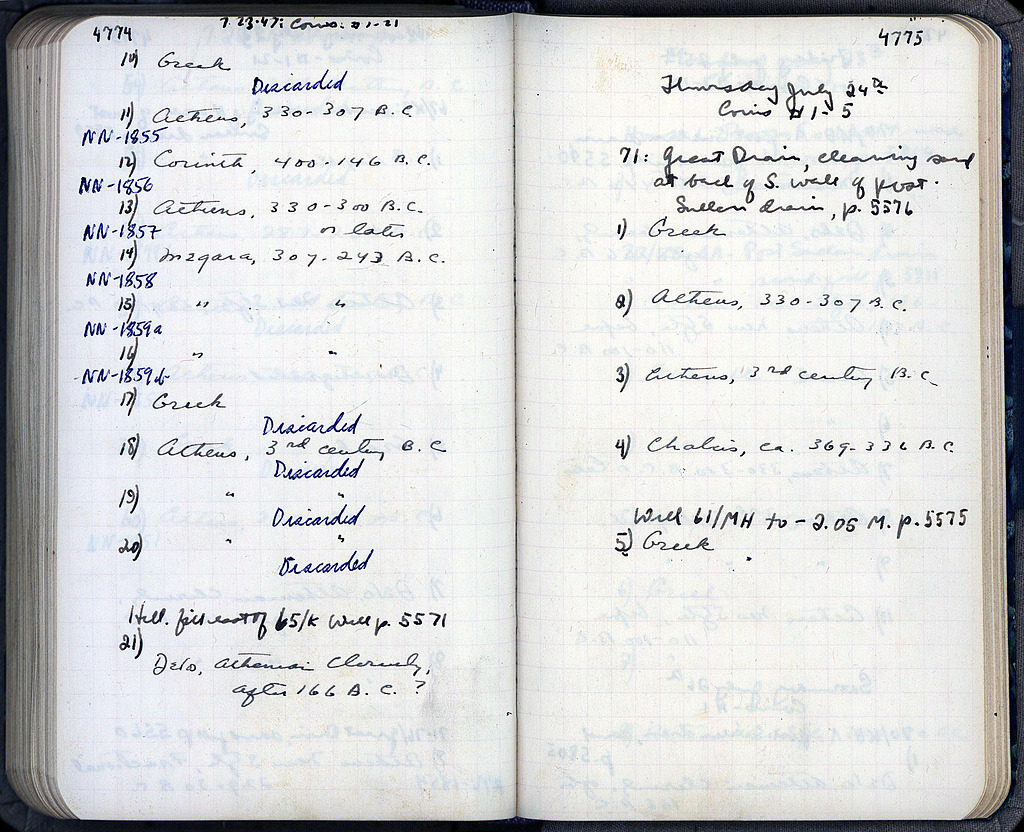 4774
7.23.47: Coins: #1-21
10) Greek
Discarded
11) Athens, 330-307 B.C.
NN-1855
12) Corinth, 400-146 B.C.
NN-1856
13) Athens, 330-300 B.C.
NN-1857 or later
14) Megara, 307-243 B.C.
NN-1858
15) " "
NN-1859a
16) " "
NN-1859b
17) Greek
Discarded
18) Athens, 3rd century B.C.
Discarded
19) " "
Discarded
20) " "
Discarded
Hell. fill east of 65/K Well p. 5571
21)
Delo, Athenian Cleruchy,
after 166 B.C. ?
4775
Thursday July 24th
Coins #1-5
71: Great Drain, cleaning sand
at back of S. wall of post-
Sullan drain, p. 5576
1) Greek
2) Athens, 330-307 B.C.
3) Athens, 3rd century B.C.
4) Chalcis, ca. 369-336 B.C.
Well 61/MH to -2.05 M. p. 5575
5) Greek